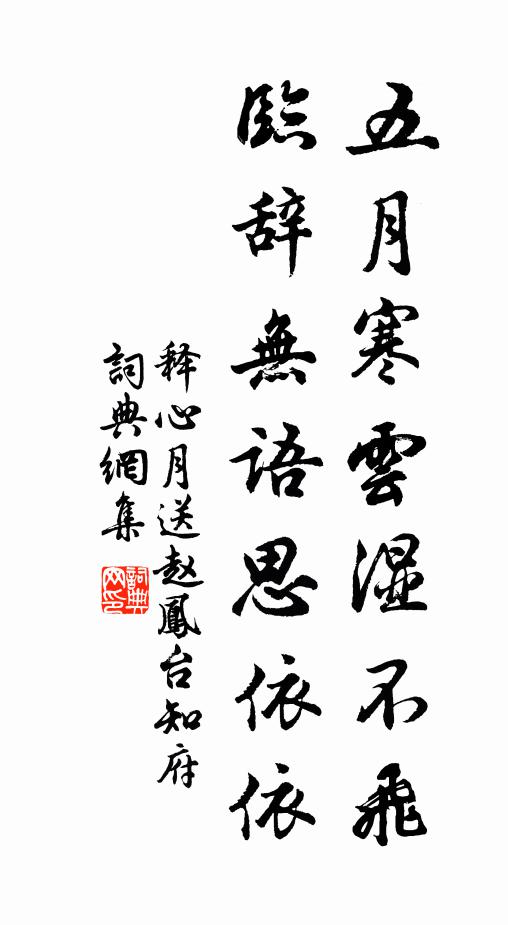 五月寒雲湿不飛
臨辞無語思依依
释心月送赵鳳台知府
詞典網集
詞典
网印